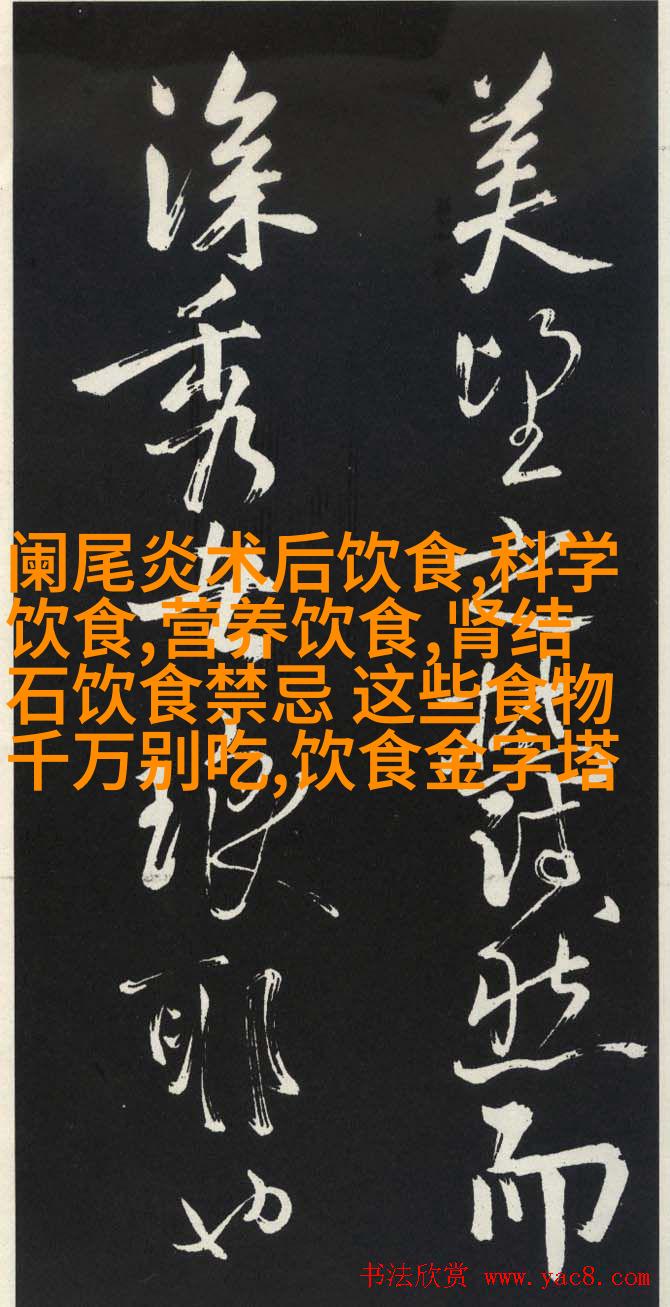 美望之蔚然而
深秀者琅耶也
阑尾炎术后饮食,科学
饮食,营养饮食,肾结
石饮食禁忌 这些食物
千万别吃,饮食金字塔
书法欣赏 www.yac8.com